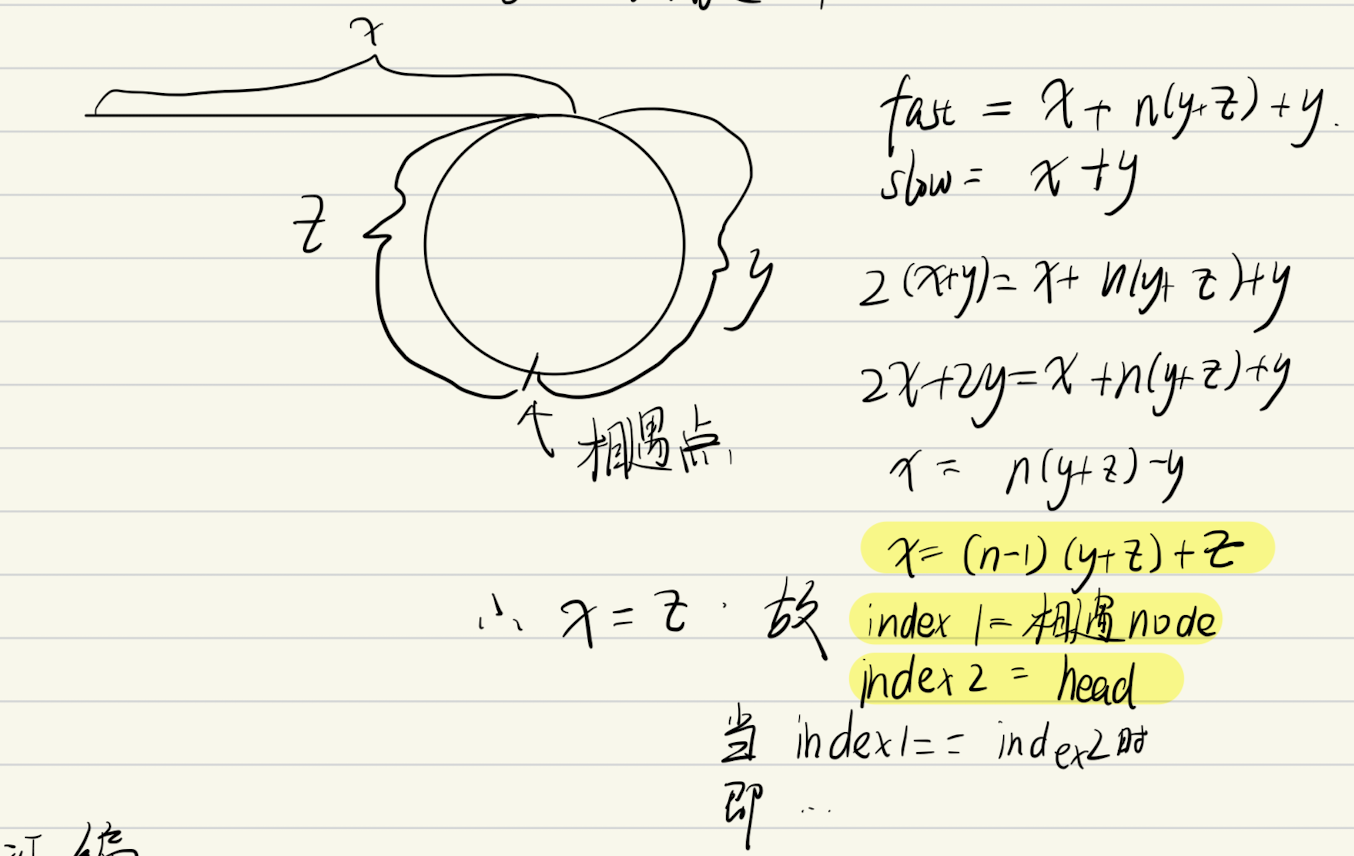 x
fast = x + n(y+z)+y.
slow = x + y
z
y
2(x+y)= x+ n(y+z)+y
2x+2y=x+n(y+z)+y
相遇点
x = n(y+z)-y
x= (n-1)(y+z)+z
∴ x = z 故
index1=相遇node
index2 = head
当 index1== index2时
即 ...